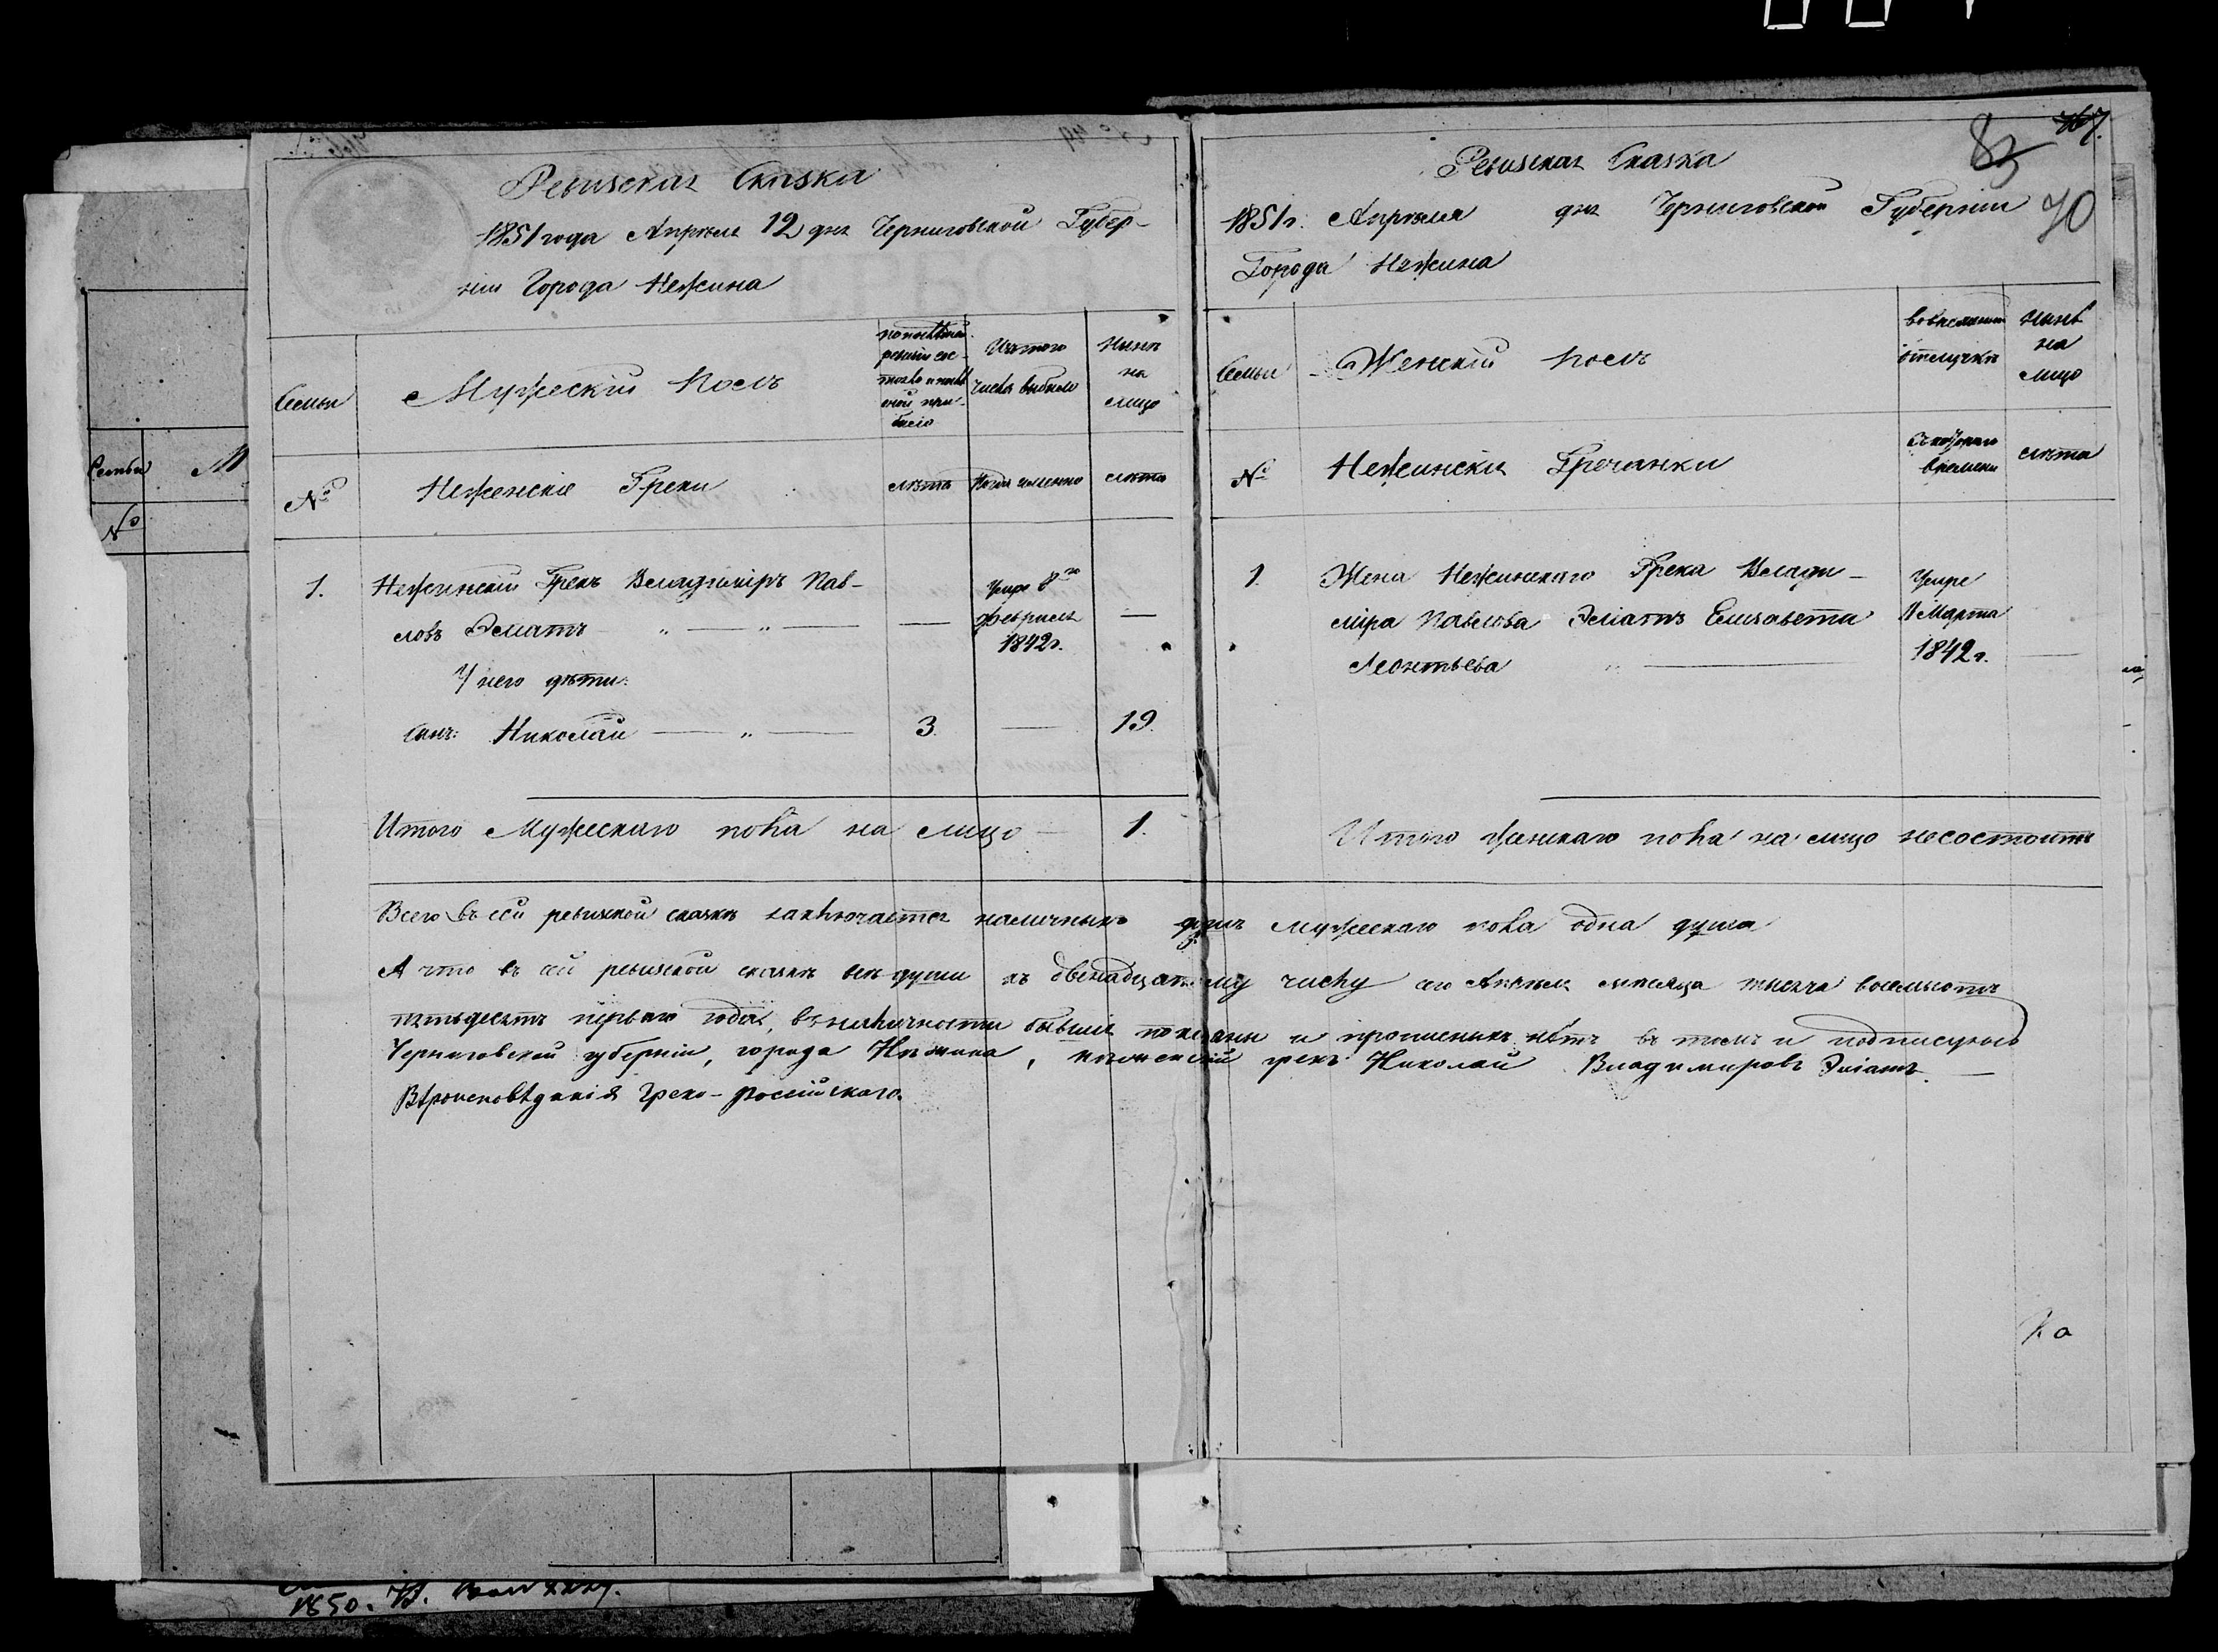 Ревизская Сказка
1851 года Апреля 12 дня Черниговской Губер-
нiи Города Нежина
Семьи
Мужескiй Полъ
Изъ того
числа выбыло
Нынѣ
на
лицо
№
Неженскiе Греки
лѣта
Когда именно
лѣта
1.
Нежинскiй Грекъ Владимiръ Пав-
ловъ Элiатъ
Умре 8го
февраля
1842 г.
У него дѣти:
Сынъ: Николай
3.
19.
Итого Мужескаго пола на лицо
1.
83
70
Ревизская Сказка
1851 г. Апреля дня Черниговской Губернiи
Города Нежина
Семьи
Женскiй Полъ
во временной
отлучкѣ
Нынѣ
на
лицо
№
Нежински Гречанки
Съ котораго
времени
лѣта
1.
Жена Нежинскаго Грека Влади-
мiра Павлова Элiатъ Елизавета
Леонтьева
Умре
11 Марта
1842 г.
Итого женскаго пола на лицо несостоитъ
Всего въ сей ревизской сказкѣ заключается наличныхъ душъ мужескаго пола одна душа
А что въ сей ревизской сказкѣ всѣ души къ двенадцатому числу сего Апреля месяца тысяча восемьсотъ
пятьдесятъ перваго года, въ наличности бывшiя показаны и прописныхъ нѣтъ въ томъ и подписуюсь
Черниговской губернiи, города Нѣжина, нѣженскiй грекъ Николай Владимировъ Элiатъ.
Вѣроисповѣданiя Греко-Россiйскаго.
Семьи М
№
1850.